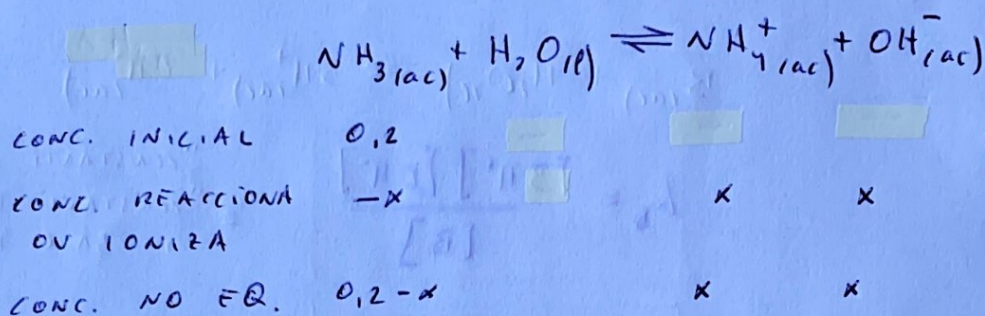 NH₃(ac) + H₂O(l) ⇌ NH₄⁺(ac) + OH⁻(ac)
CONC. INICIAL 0,2
CONC. REACCIONA -x x x
OU IONIZA
CONC. NO EQ. 0,2-x x x